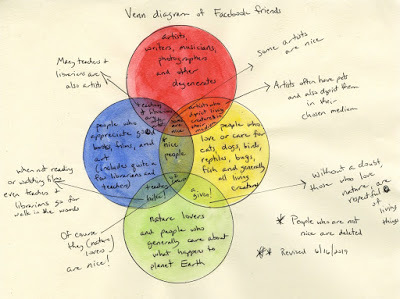 Venn diagram of Facebook friends
artists,
writers, musicians,
photographers
and other
degenerates
Many teachers +
librarians are
also artists
some artists
are nice
Artists often have pets
and also depict them
in their
chosen medium
artists who
depict living
creatures in
their
medium
people who
appreciate good
books, films, and
art
(includes quite a
few librarians and
teachers)
* nice
people
people who
love or care for
cats, dogs, birds,
reptiles, bugs,
fish and generally
all living
creatures
teachers
hike!
of course
a given!
when not reading
or watching films
even teachers +
librarians go for
walk in the woods
Without a doubt,
those who love
nature are
respectful
of
living
things
nature lovers
and people who
generally care about
what happens to
planet Earth
Of course
they (nature
lovers)
are nice!
* People who are
not nice are deleted
** Revised 6/16/2019